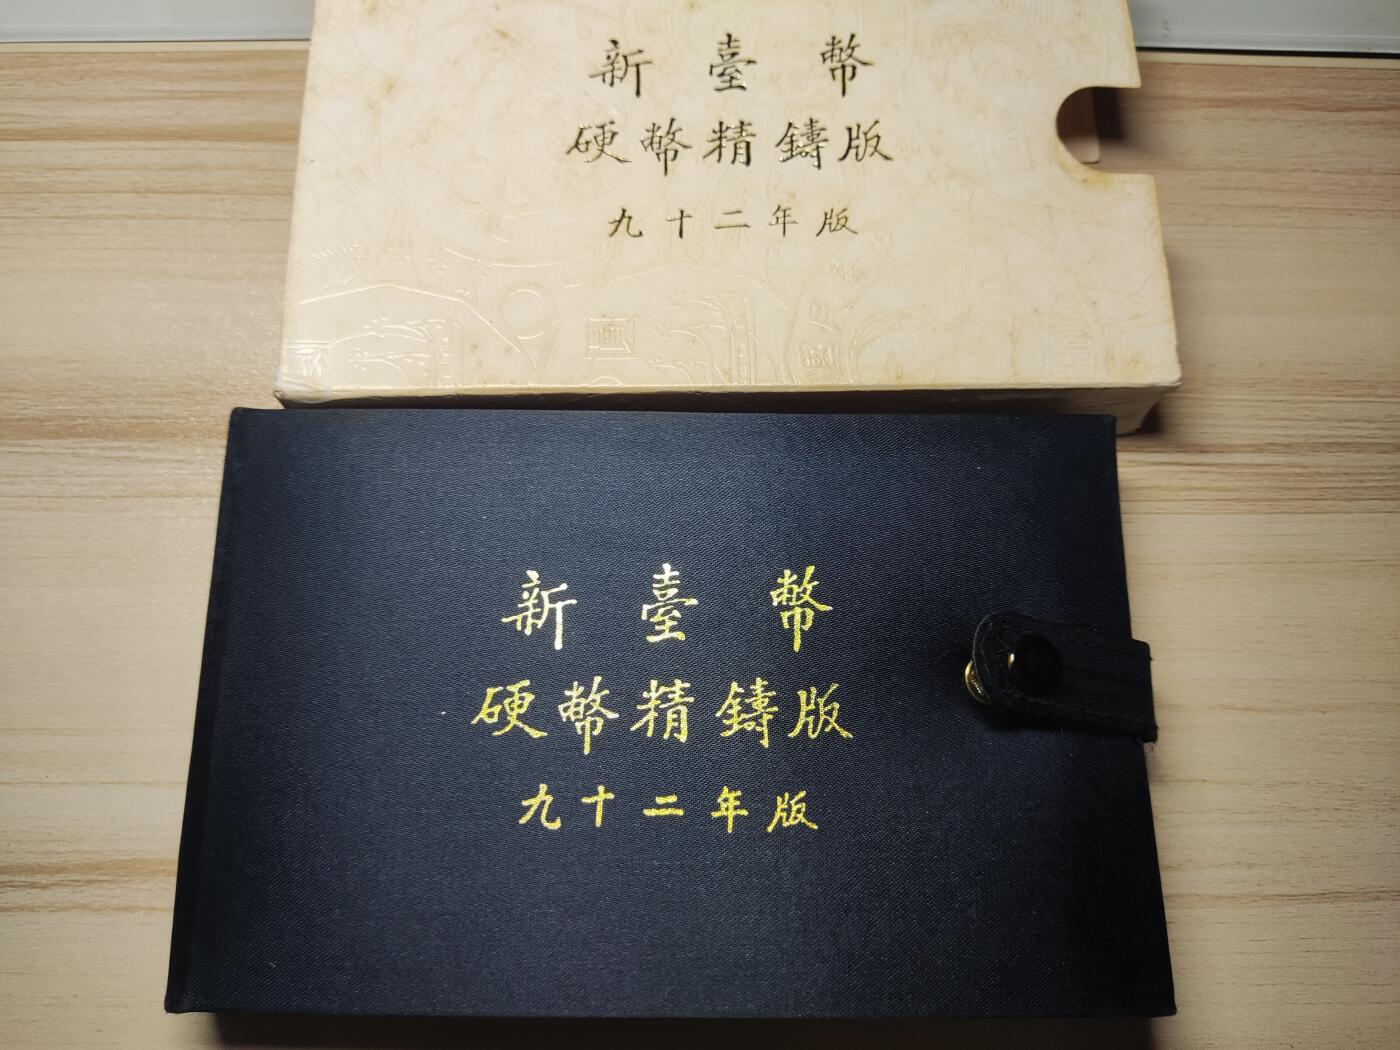 新臺幣
硬幣精鑄版
九十二年版
新臺幣
硬幣精鑄版
九十二年版